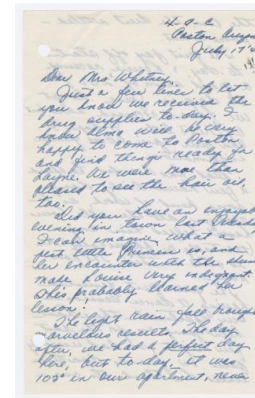 4-9-C
Poston, Arizona
July 17
Dear Mrs. Whitney,
Just a few lines to let
you know we received the
drug supplies to-day. I
know Alma will be very
happy to come to Poston
and find things ready for
Layne. We were more than
pleased to see the hair oil,
too.
Did you have an enjoyable
evening in town last
I can imagine what a
pest little is, and
her encounter with the
made Louise very indignant.
She's probably learned her
lesson!
The light rain fall brought
marvelous results. The day
after, we had a perfect day
here, but to-day, it was
103° in our apartment, never